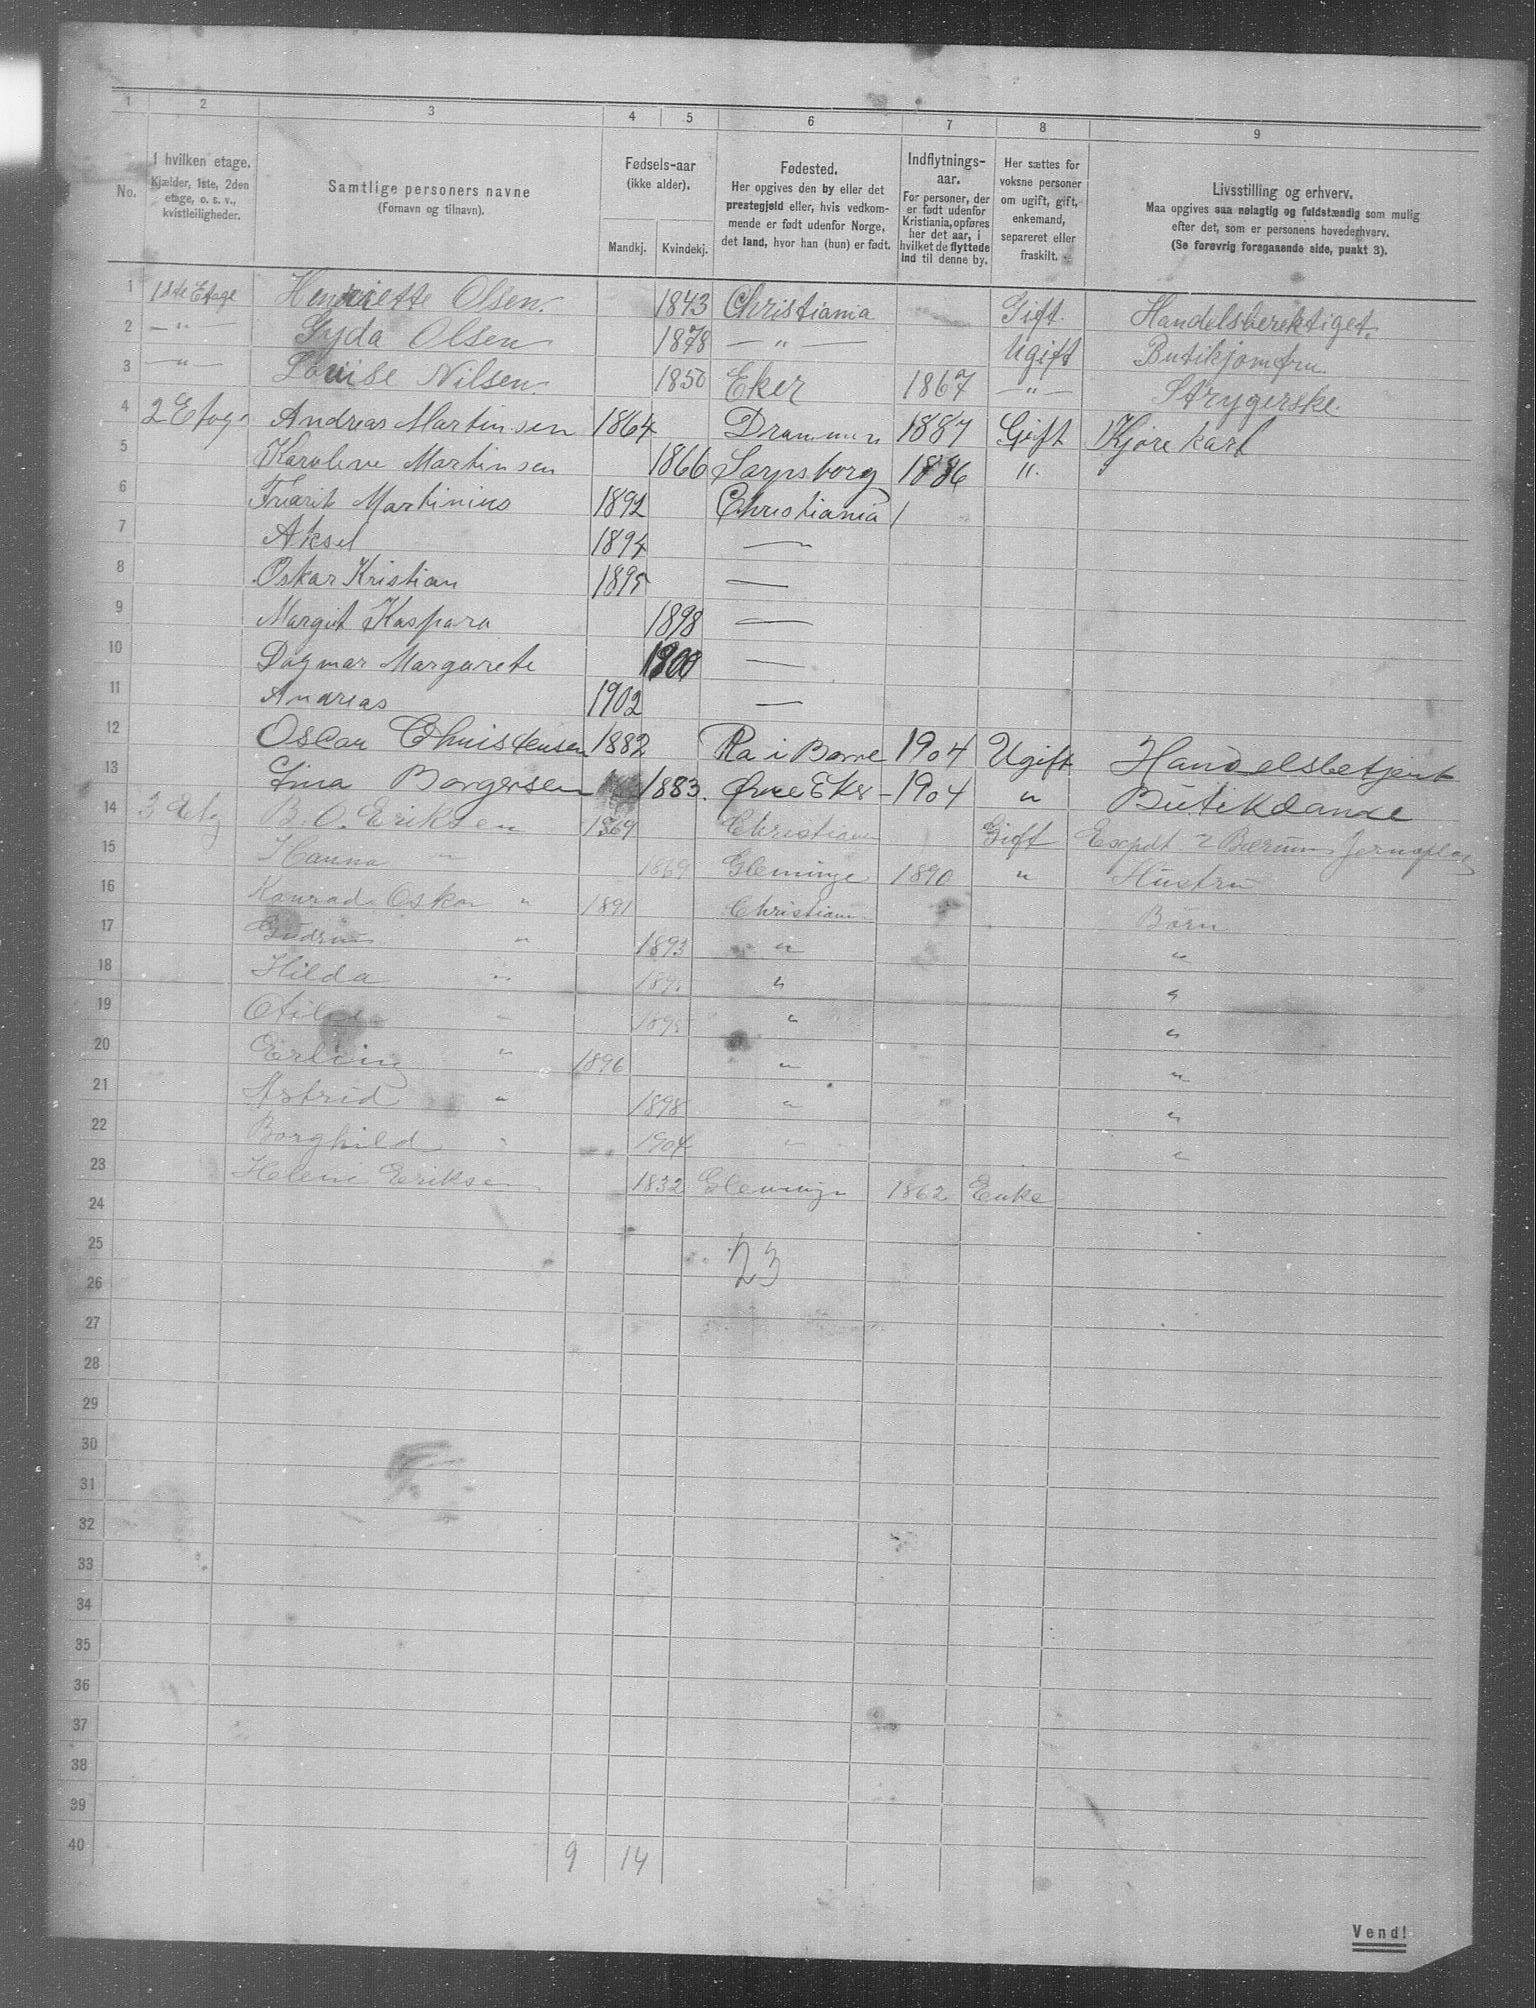 1 2 3 4 5 6 7 8 9
No.
I hvilken etage.
Kjælder, 1ste, 2den
etage, o. s. v.,
kvistleiligheder.
Samtlige personers navne
(Fornavn og tilnavn).
Fødsels-aar
(ikke alder).
Mandkj. Kvindekj.
Fødested.
Her opgives den by eller det
prestegjeld eller, hvis vedkom-
mende er født udenfor Norge,
det land, hvor han (hun) er født.
Indflytnings-
aar.
For personer, der
er født udenfor
Kristiania, opføres
her det aar, i
hvilket de flyttede
ind til denne by.
Her sættes for
voksne personer
om ugift, gift,
enkemand,
separeret eller
fraskilt.
Livsstilling og erhverv.
Maa opgives saa nøiagtig og fuldstændig som mulig
efter det, som er personens hovederhverv.
(Se forøvrig foregaaende side, punkt 3).
1 1ste Etage Henriette Olsen. 1843 Christiania Gift. Handelsberektiget.
2 — " — Gyda Olsen 1878 — " — Ugift Butikjomfru
3 — " — Louise Nilsen. 1850 Eker 1867 — " — Strygerske.
4 2 Etage Andreas Martinsen 1864 Drammen 1887 Gift Kjøre karl
5 Karoline Martinsen 1866 Sarpsborg 1886 "
6 Fredrik Martinius 1892 Christiania
7 Aksel 1894 —
8 Oskar Kristian 1895 —
9 Margit Kaspara 1898 —
10 Dagmar Margarete 1900 —
11 Andreas 1902 —
12 Oscar Christensen 1882 Ra i Borre 1904 Ugift Handelsbetjent
13 Lina Borgersen 1883. Øvre Eker - 1904 " Butikdame
14 3 Etg B. O. Eriksen 1869 Christiania Gift Exspdt Bærums Jernoplag
15 Hanna " 1869 Glemminge 1890 " Hustru
16 Konrad Oskar " 1891 Christiania Børn
17 Gudrun " 1893 " "
18 Hilda " " "
19 " 1895 " "
20 Erling " 1896 " "
21 Astrid " 1898 " "
22 Borghild " 1904 " "
23 Helene Eriksen 1832 Glemminge 1862 Enke
24
25 23
26
27
28
29
30
31
32
33
34
35
36
37
38
39
40 9 14
Vend!